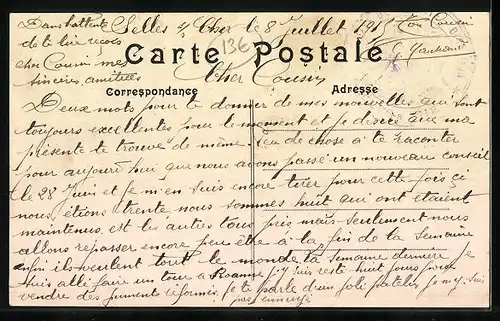 Dans l'attente
de te lire reçois
cher Cousin mes
sincères amitiées
ton Cousin
Selles s/ Cher le 8 Juillet 191
136
Carte Postale
Cher Cousin
Correspondance
Adresse
Deux mots pour te donner de mes nouvelles qui sont
toujours excellentes pour le moment et je désire que ma
présente te trouve de même. Peu de chose à te raconter
pour aujourd'hui que nous avons passé un nouveau conseil
le 28 Juin et je m'en suis encore tirer pour cette fois çi
nous étions trente nous sommes huit qui ont étaient
maintenus et les autres tous pris mais seulement nous
allons repasser encore peu être à la fin de la semaine
enfin ils veulent tout le monde la semaine dernière je
suis allé faire un tour à Roanne j'y suis resté huit jours pour
vendre des juments réformés je te parle d'un joli patelin je m'y suis
pas ennuyé